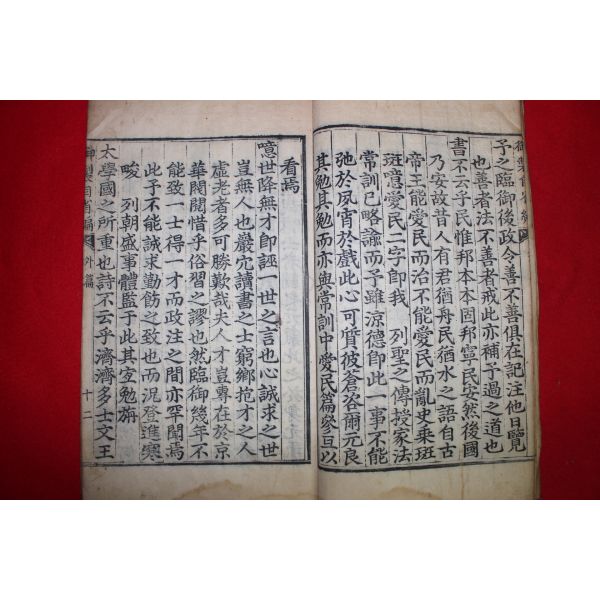 御製自省編
予之臨御後政令善不善俱在記注他日覽
也善者法不善者戒此亦補予過之道也
書不云乎民惟邦本本固邦寧民安然後國
乃安故昔人有君猶舟民猶水之語自古
帝王能愛民而治不能愛民而亂史乘班
斑噫愛民二字卽我 列聖之傳授家法
常訓已略諭而予雖涼德卽此一事不能
弛於夙宵於戲此心可質彼蒼咨爾元良
其勉其勉而亦與常訓中愛民篇參互以
看焉
噫世降無才卽誣一世之言也心誠求之世
豈無人也巖穴讀書之士窮鄕抱才之人
虛老者多可勝歎哉夫人才豈專在於京
華閥閱惜乎俗習之謬也然臨御幾年不
能致一士得一才而政注之間亦罕聞焉
此予不能誠求勤飭之致也而況登進寒
畯 列朝盛事體監于此其宜勉旃
太學國之所重也詩不云乎濟濟多士文王
御製自省編 外篇 十二